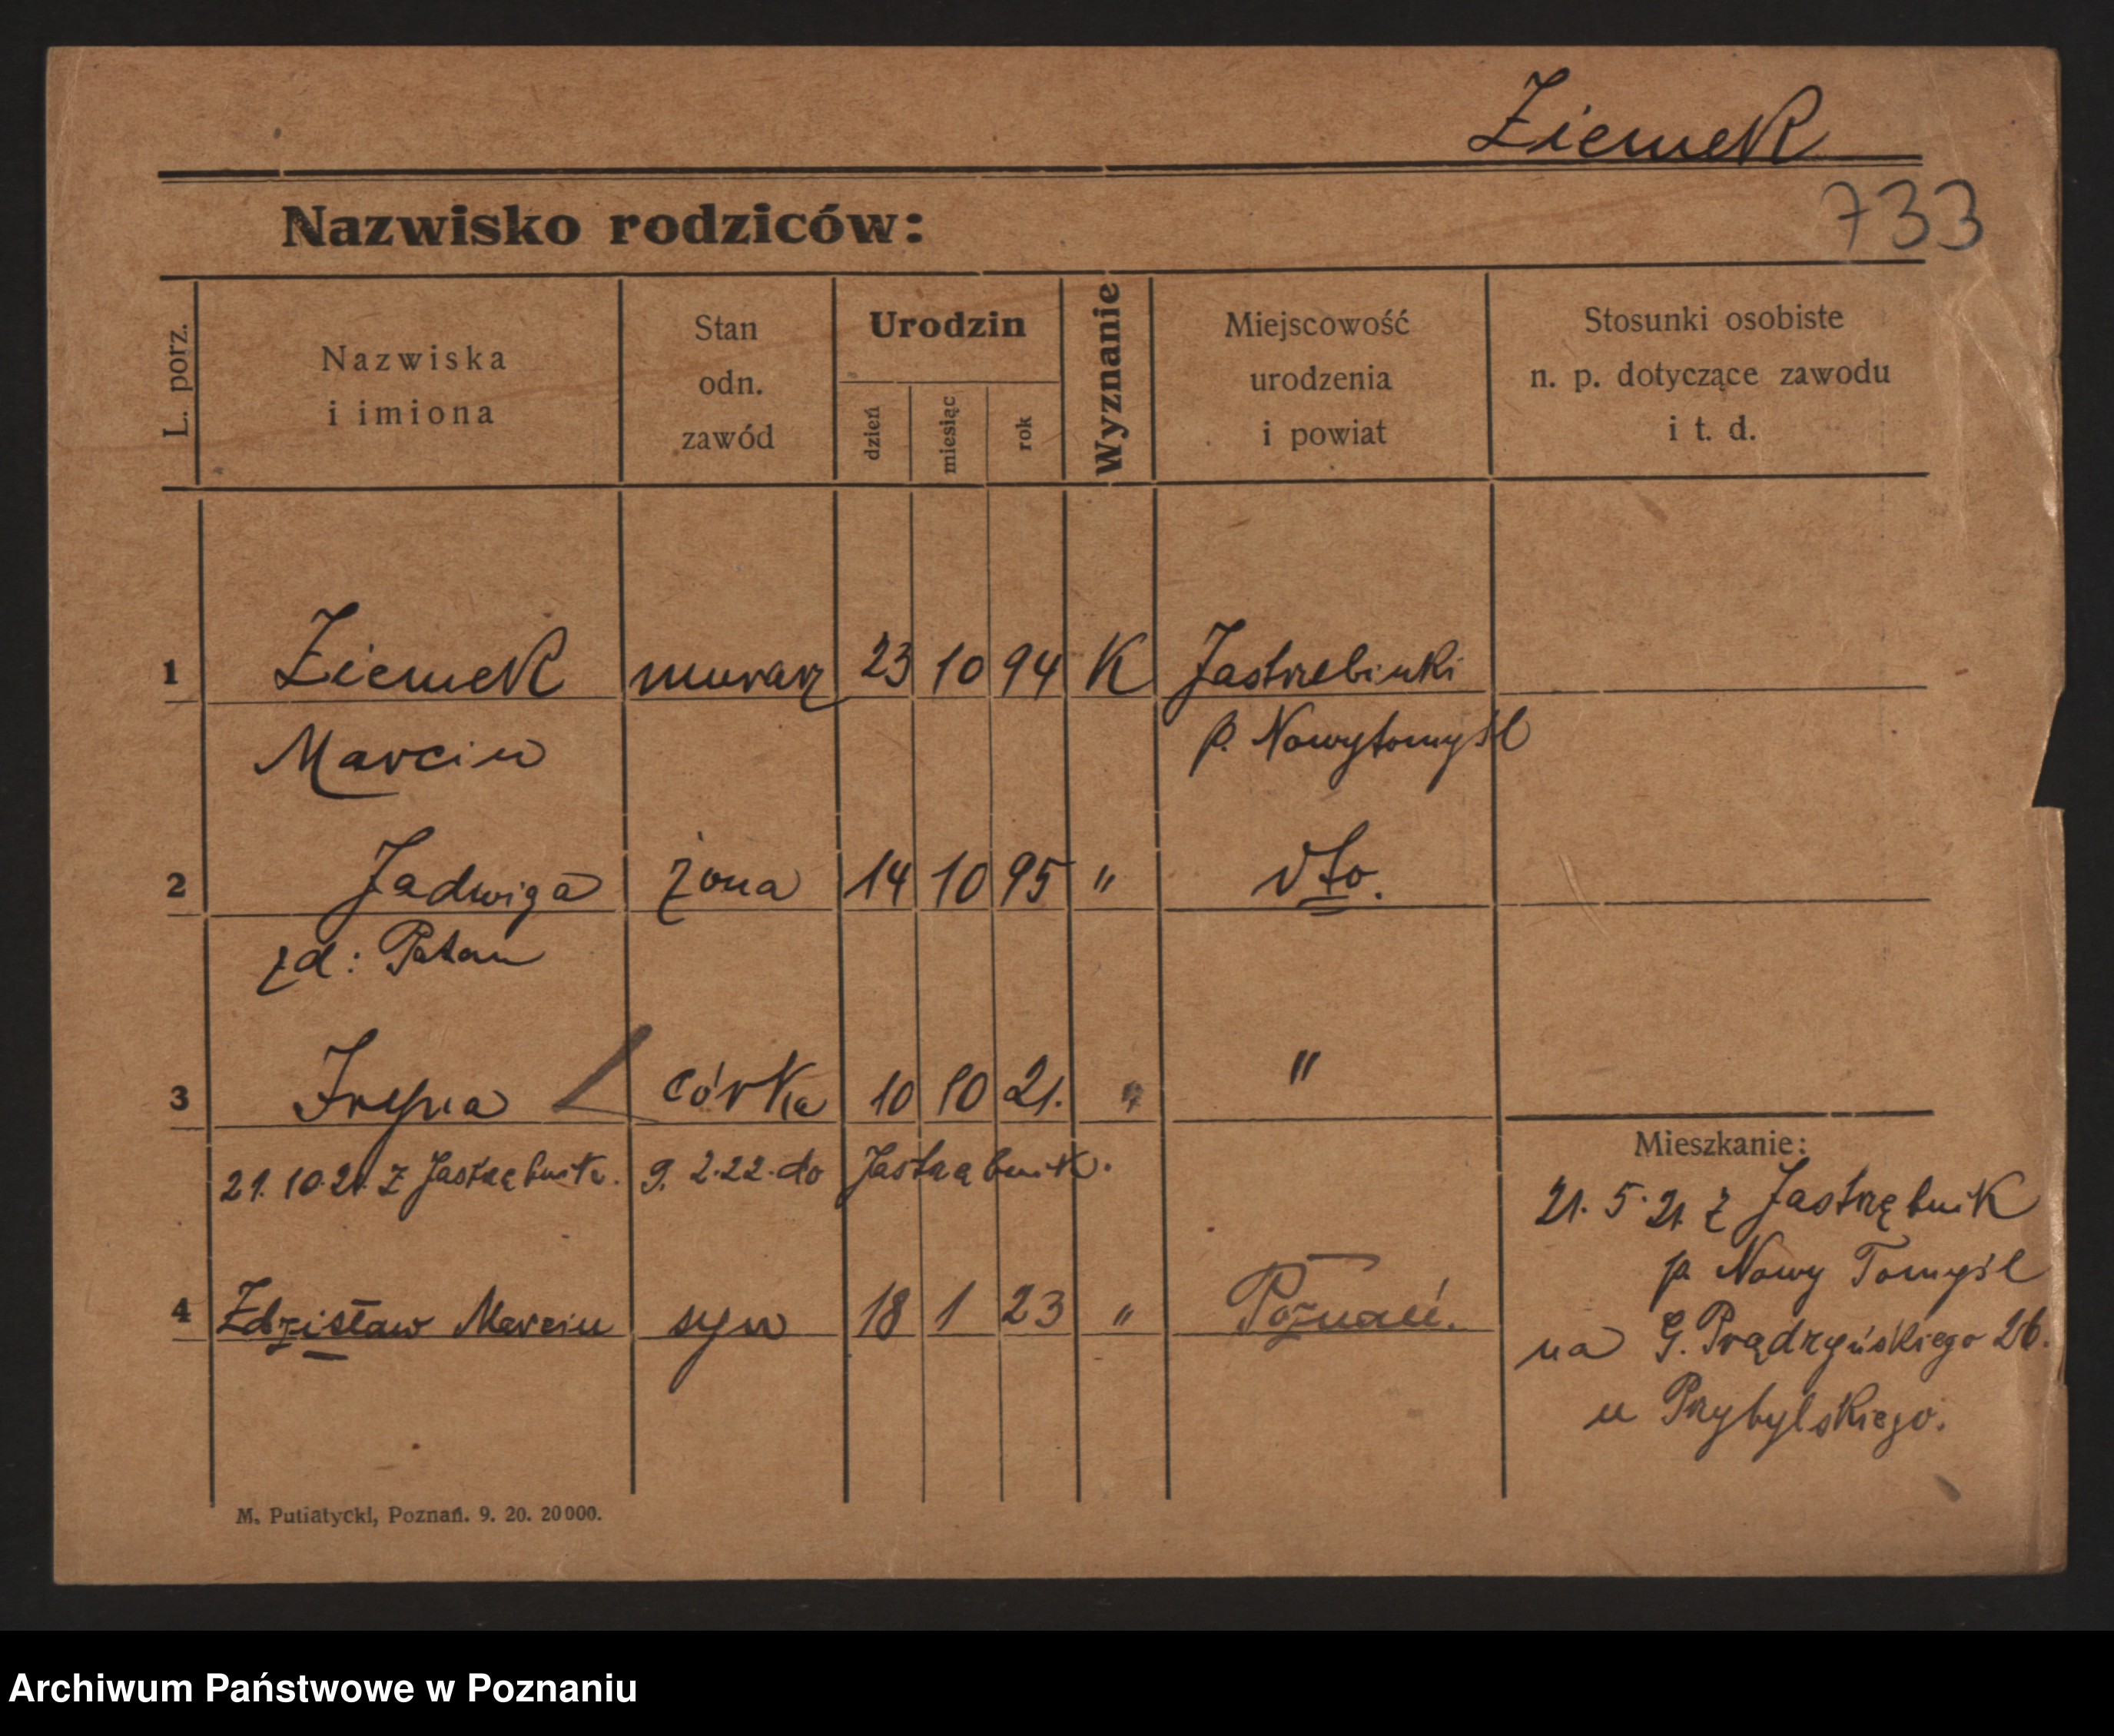 Ziemek
733
Nazwisko rodziców:
L. porz.
Nazwiska
i imiona
Stan
odn.
zawód
Urodzin
dzień
miesiąc
rok
Wyznanie
Miejscowość
urodzenia
i powiat
Stosunki osobiste
n. p. dotyczące zawodu
i t. d.
1 Ziemek murarz 23 10 94 K Jastrzebinki
Marcin p. Nowytomyśl
2 Jadwiga żona 14 10 95 " dto.
zd: Patan
3 Irena córka 10 10 21. " "
21.10.21. z Jastrzębnik. 9. 2.22. do Jastrzębnik.
4 Zdzisław Marcin syn 18 1 23 " Poznań.
Mieszkanie:
21. 5. 21 z Jastrzębnik
p. Nowy Tomyśl
na G. Prądzyńskiego 26.
u Przybylskiego.
M. Putiatycki, Poznań. 9. 20. 20000.
Archiwum Państwowe w Poznaniu